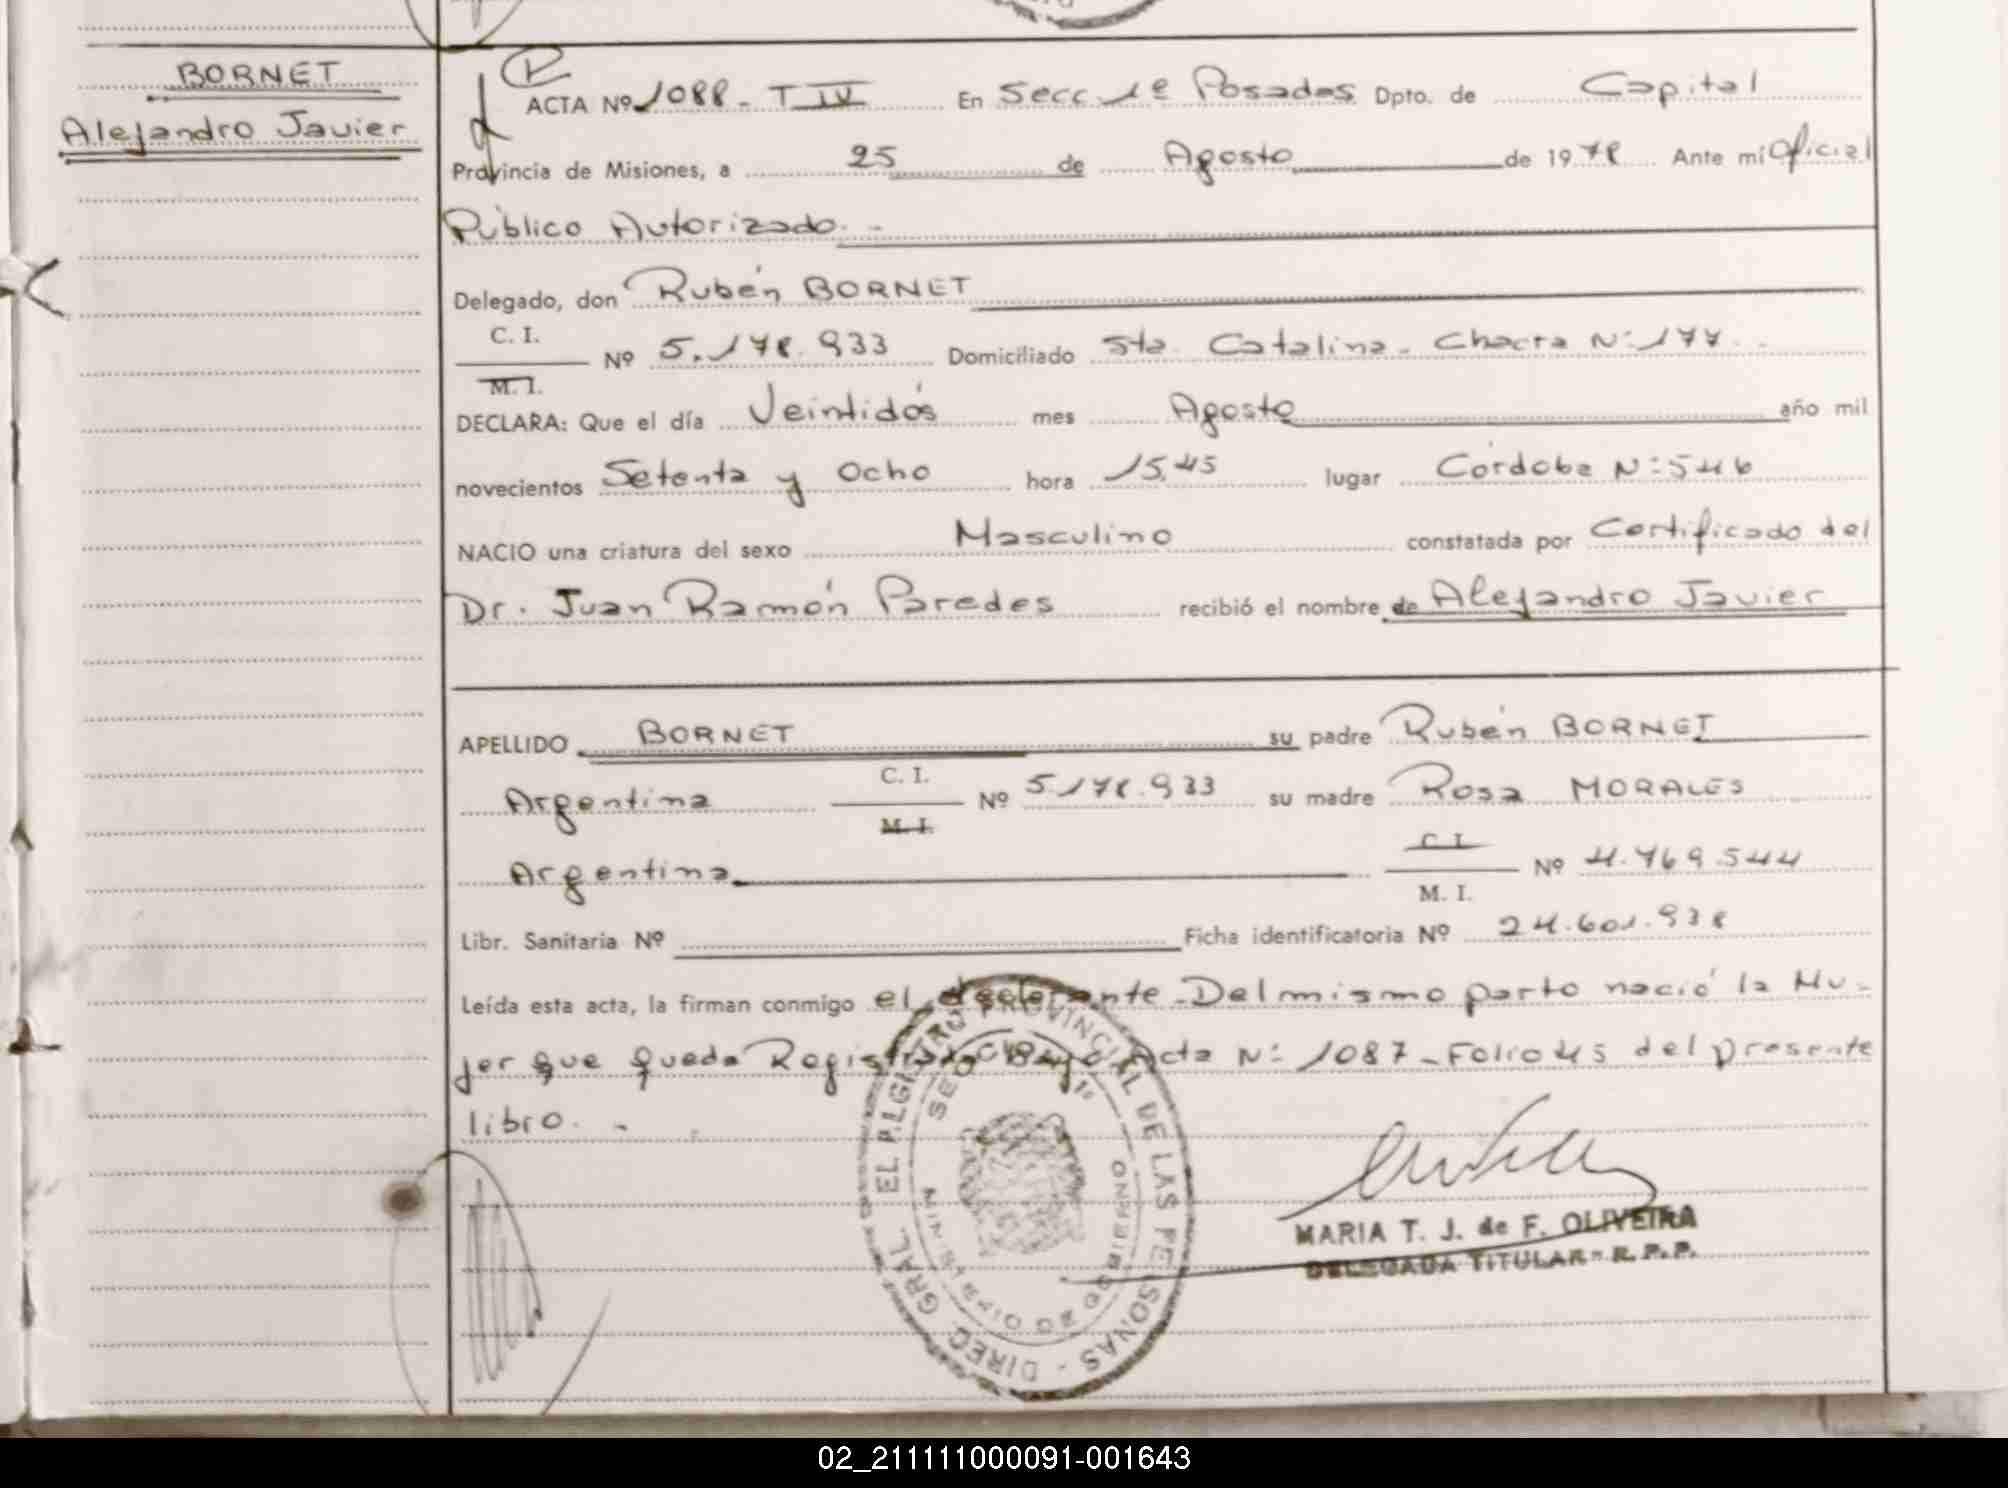 BORNET
Alejandro Javier
ACTA Nº 1088 - T IV En Secc 1ª Posadas Dpto. de Capital
Provincia de Misiones, a 25 de Agosto de 1978 Ante mí Oficial
Público Autorizado. -
Delegado, don Rubén BORNET
C. I.
Nº 5.178.933 Domiciliado Sta. Catalina - Chacra Nº: 177.
M. I.
DECLARA: Que el día Veintidós mes Agosto año mil
novecientos Setenta y Ocho hora 15,45 lugar Córdoba Nº: 546
NACIO una criatura del sexo Masculino constatada por Certificado del
Dr. Juan Ramón Paredes recibió el nombre de Alejandro Javier
APELLIDO BORNET su padre Rubén BORNET
Argentina C. I. Nº 5.178.933 su madre Rosa MORALES
M. I.
C. I.
Argentina Nº 4.769.544
M. I.
Libr. Sanitaria Nº Ficha identificatoria Nº 24.601.938
Leída esta acta, la firman conmigo el declarante - Del mismo parto nació la Mu-
jer que queda Registrada Bajo Acta Nº: 1087 - Folio 45 del presente
libro. -
EL REGISTRO PROVINCIAL DE LAS PERSONAS - DIREC. GRAL.
MINISTERIO DE GOBIERNO
MARIA T. J. de F. OLIVEIRA
DELEGADA TITULAR - R. P. P.
02_211111000091-001643